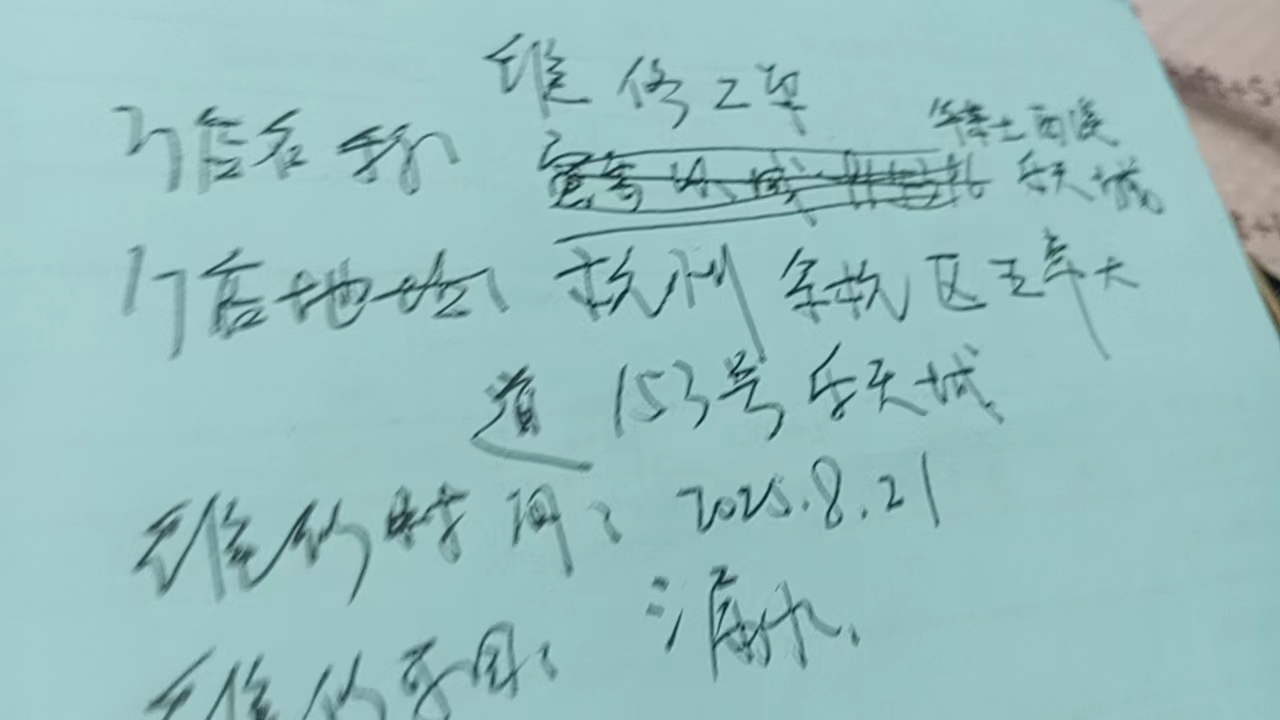 维修工单
门店名称 华莱士西溪
乐天城
门店地址、杭州余杭区五常大
道153号乐天城
维修时间：2025.8.21
维修项目：漏水、